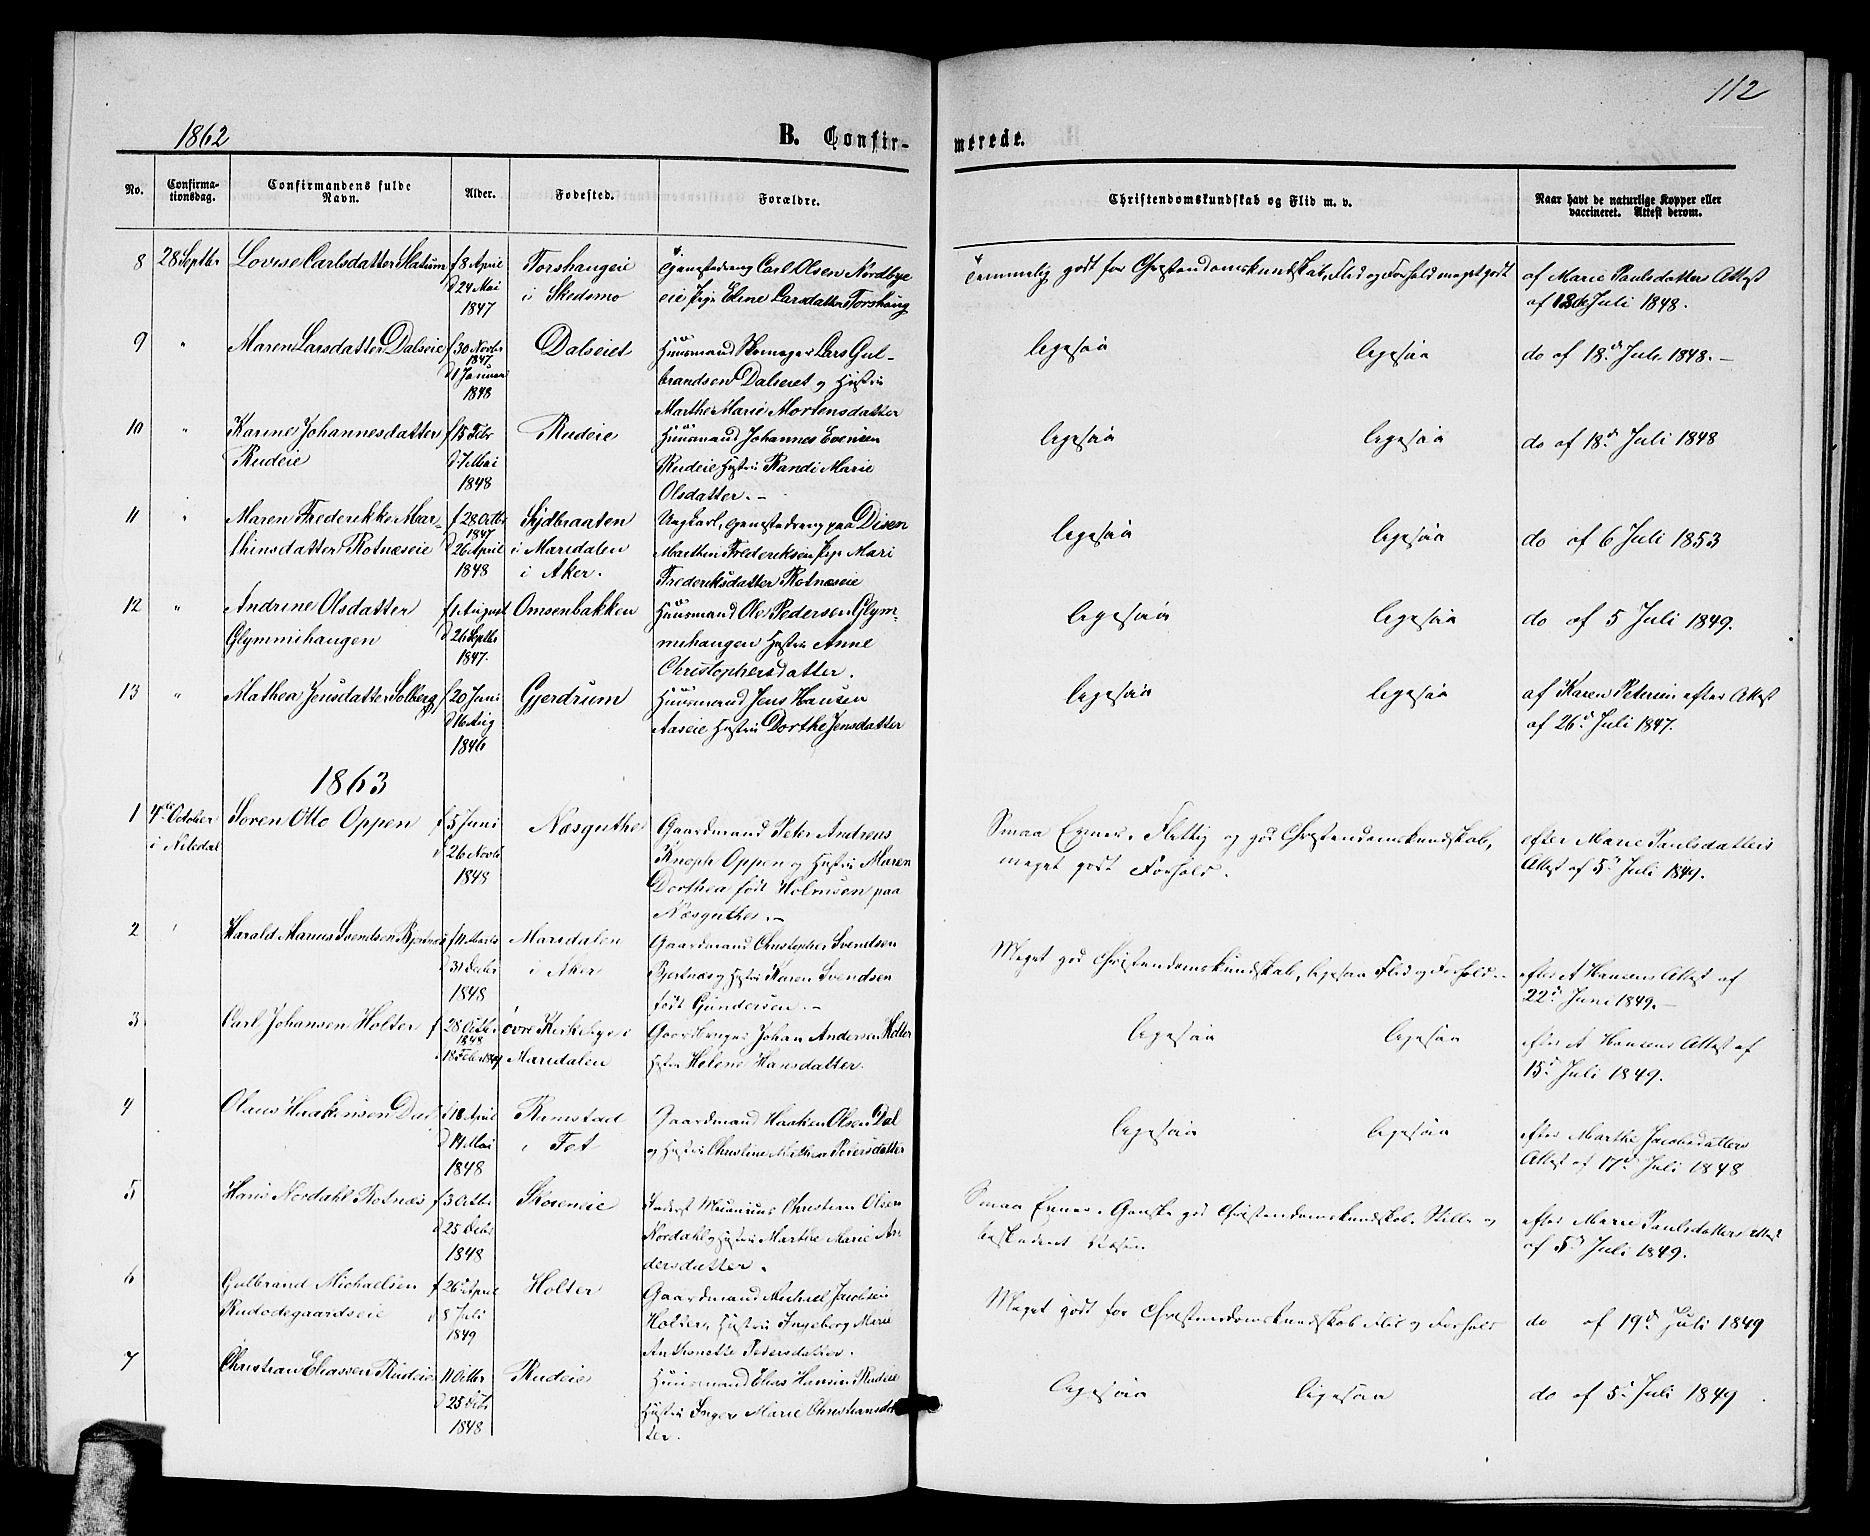 112
1862
B. Confirmerede.
No.
Confirmationsdag.
Confirmandens fulde Navn.
Alder.
Fødested.
Forældre.
Christendomskundskab og Flid m. v.
Naar havt de naturlige Kopper eller vaccineret. Attest derom.
8 28 Septbr Lovise Carlsdatter Slatum f 8 April Torshaugeie Tjenestedreng Carl Olsen Nordbye Temmelig godt for Christendomskundskab, Flid og Forhold meget godt af Marie Paulsdatter Attest
d 24 Mai i Skedsmo eie Pige Eline Larsdatter Torshaug af Juli 1848.
1847
9 " Maren Larsdatter Dalseie f 30 Novbr Dalseiet Huusmand Skomager Lars Gul- ligesaa ligesaa do af 18d Juli 1848. –
1847
d 1 Januar brandsen Dalseiet og Hustru
1848 Marthe Marie Mortensdatter
10 " Karine Johannesdatter f 15 Febr Rudeie Huusmand Johannes Evensen ligesaa ligesaa do af 18d Juli 1848
Rudeie d 7 Mai Rudeie Hustru Randi Marie
1848 Olsdatter. –
11 " Maren Frederikke Mar- f 28 Octbr Skjdbraaten Ungkarl, Tjenestedreng paa Disen ligesaa ligesaa do af 6 Juli 1853
1847
thinsdatter Rotnæseie d 26 April i Maridalen Marthin Frederiksen Pige Mari
1848 i Aker. Frederiksdatter Rotnæseie
12 " Andrine Olsdatter f 1 August Omsenbakken Huusmand Ole Pedersen Glym- ligesaa ligesaa do af 5 Juli 1849.
Glymmihaugen d 26 Septbr mihaugen Hustru Anne
1847. Christophersdatter.
13 " Mathea Jensdatter Solberg f 20 Juni Gjerdrum Huusmand Jens Hansen ligesaa ligesaa af Karen Petersen efter Attest
d 16 Aug Aaseie Hustru Dorthe Jensdatter af 26d Juli 1847.
1846
1863
1 4de October Søren Otto Oppen f 5 Juni Næsguthe Gaardmand Peter Andreas Smaa Evner. Flittig og god Christendomskundskab, efter Marie Paulsdatters
i Nitedal d 26 Novbr Knoph Oppen og Hustru Maren meget godt Forhold. Attest af 5d Juli 1849.
1848 Dorthea født Holmsen paa
Næsguthe. –
2 ' Harald Marius Svendsen Bjertnæs f 11 Marts Marsdalen Gaardmand Christopher Svendsen Meget god Christendomskundskab, ligesaa Flid og Forhold. – efter A Hansens Attest af
d 31 Decbr i Aker Bjertnæs og Hustru Karen Svendsen 22d Juni 1849. –
1848 født Gundersen. –
3 Carl Johansen Holter f 28 Octbr øvre Kirkebye i Gaardbruger Johan Andersen Holter ligesaa ligesaa efter A Hansens Attest af
1848
d 18 Febr 1849 Maridalen Hustru Helene Hansdatter. 15d Juli 1849.
4 Olaus Haakensen Dal f 18 April Ramstad Gaardmand Haaken Olsen Dal ligesaa ligesaa efter Marthe Jacobsdatters
d 14 Mai i Fet og Hustru Christine Mathea Petersdatter Attest af 17d Juli 1848
1848
5 Hans Nordahl Rotnæs f 3 Octbr Skoseneie Christian Olsen Smaa Evner. Ganske god Christendomskundskab. Stille og efter Marie Paulsdatters Attest
d 25 Decbr Nordahl og Hustru Marthe Marie An- beskedent Væsen af 5d Juli 1849.
1848 dersdatter.
6 Gulbrand Michaelsen f 26d April Holter Gaardmand Michael Jacobsen Meget godt for Christendomskundskab Flid og Forhold do af 19d Juli 1849
Rudodegaardseie d 8 Juli Holter, Hustru Ingeborg Marie
1849 Anthonette Pedersdatter.
7 Christian Eliassen Rudeie 11 Octbr Rudeie Huusmand Elias Hansen Rudeie ligesaa ligesaa do af 5d Juli 1849
d 25 Hustru Inger Marie Christiansdat
1848 ter.